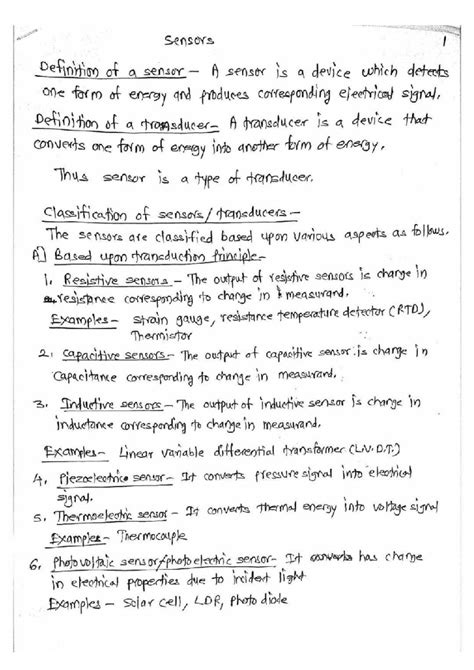 Sensors
1
Definition of a sensor - A sensor is a device which detects
one form of energy and produces corresponding electrical signal.
Definition of a transducer - A transducer is a device that
converts one form of energy into another form of energy.
Thus sensor is a type of transducer.
Classification of sensors/transducers -
The sensors are classified based upon various aspects as follows.
A) Based upon transduction Principle -
1. Resistive sensors - The output of resistive sensors is change in
resistance corresponding to change in measurand.
Examples - strain gauge, resistance temperature detector (RTD),
Thermistor
2. Capacitive sensors - The output of capacitive sensor is change in
capacitance corresponding to change in measurand.
3. Inductive sensors - The output of inductive sensor is change in
inductance corresponding to change in measurand.
Examples - Linear variable differential transformer (L.V.D.T.)
4. Piezoelectric sensor - It converts pressure signal into electrical
signal.
5. Thermoelectric sensor - It converts thermal energy into voltage signal
Examples - Thermocouple
6. Photovoltaic sensor/photoelectric sensor - It converts has change
in electrical properties due to incident light
Examples - Solar cell, LDR, Photo diode